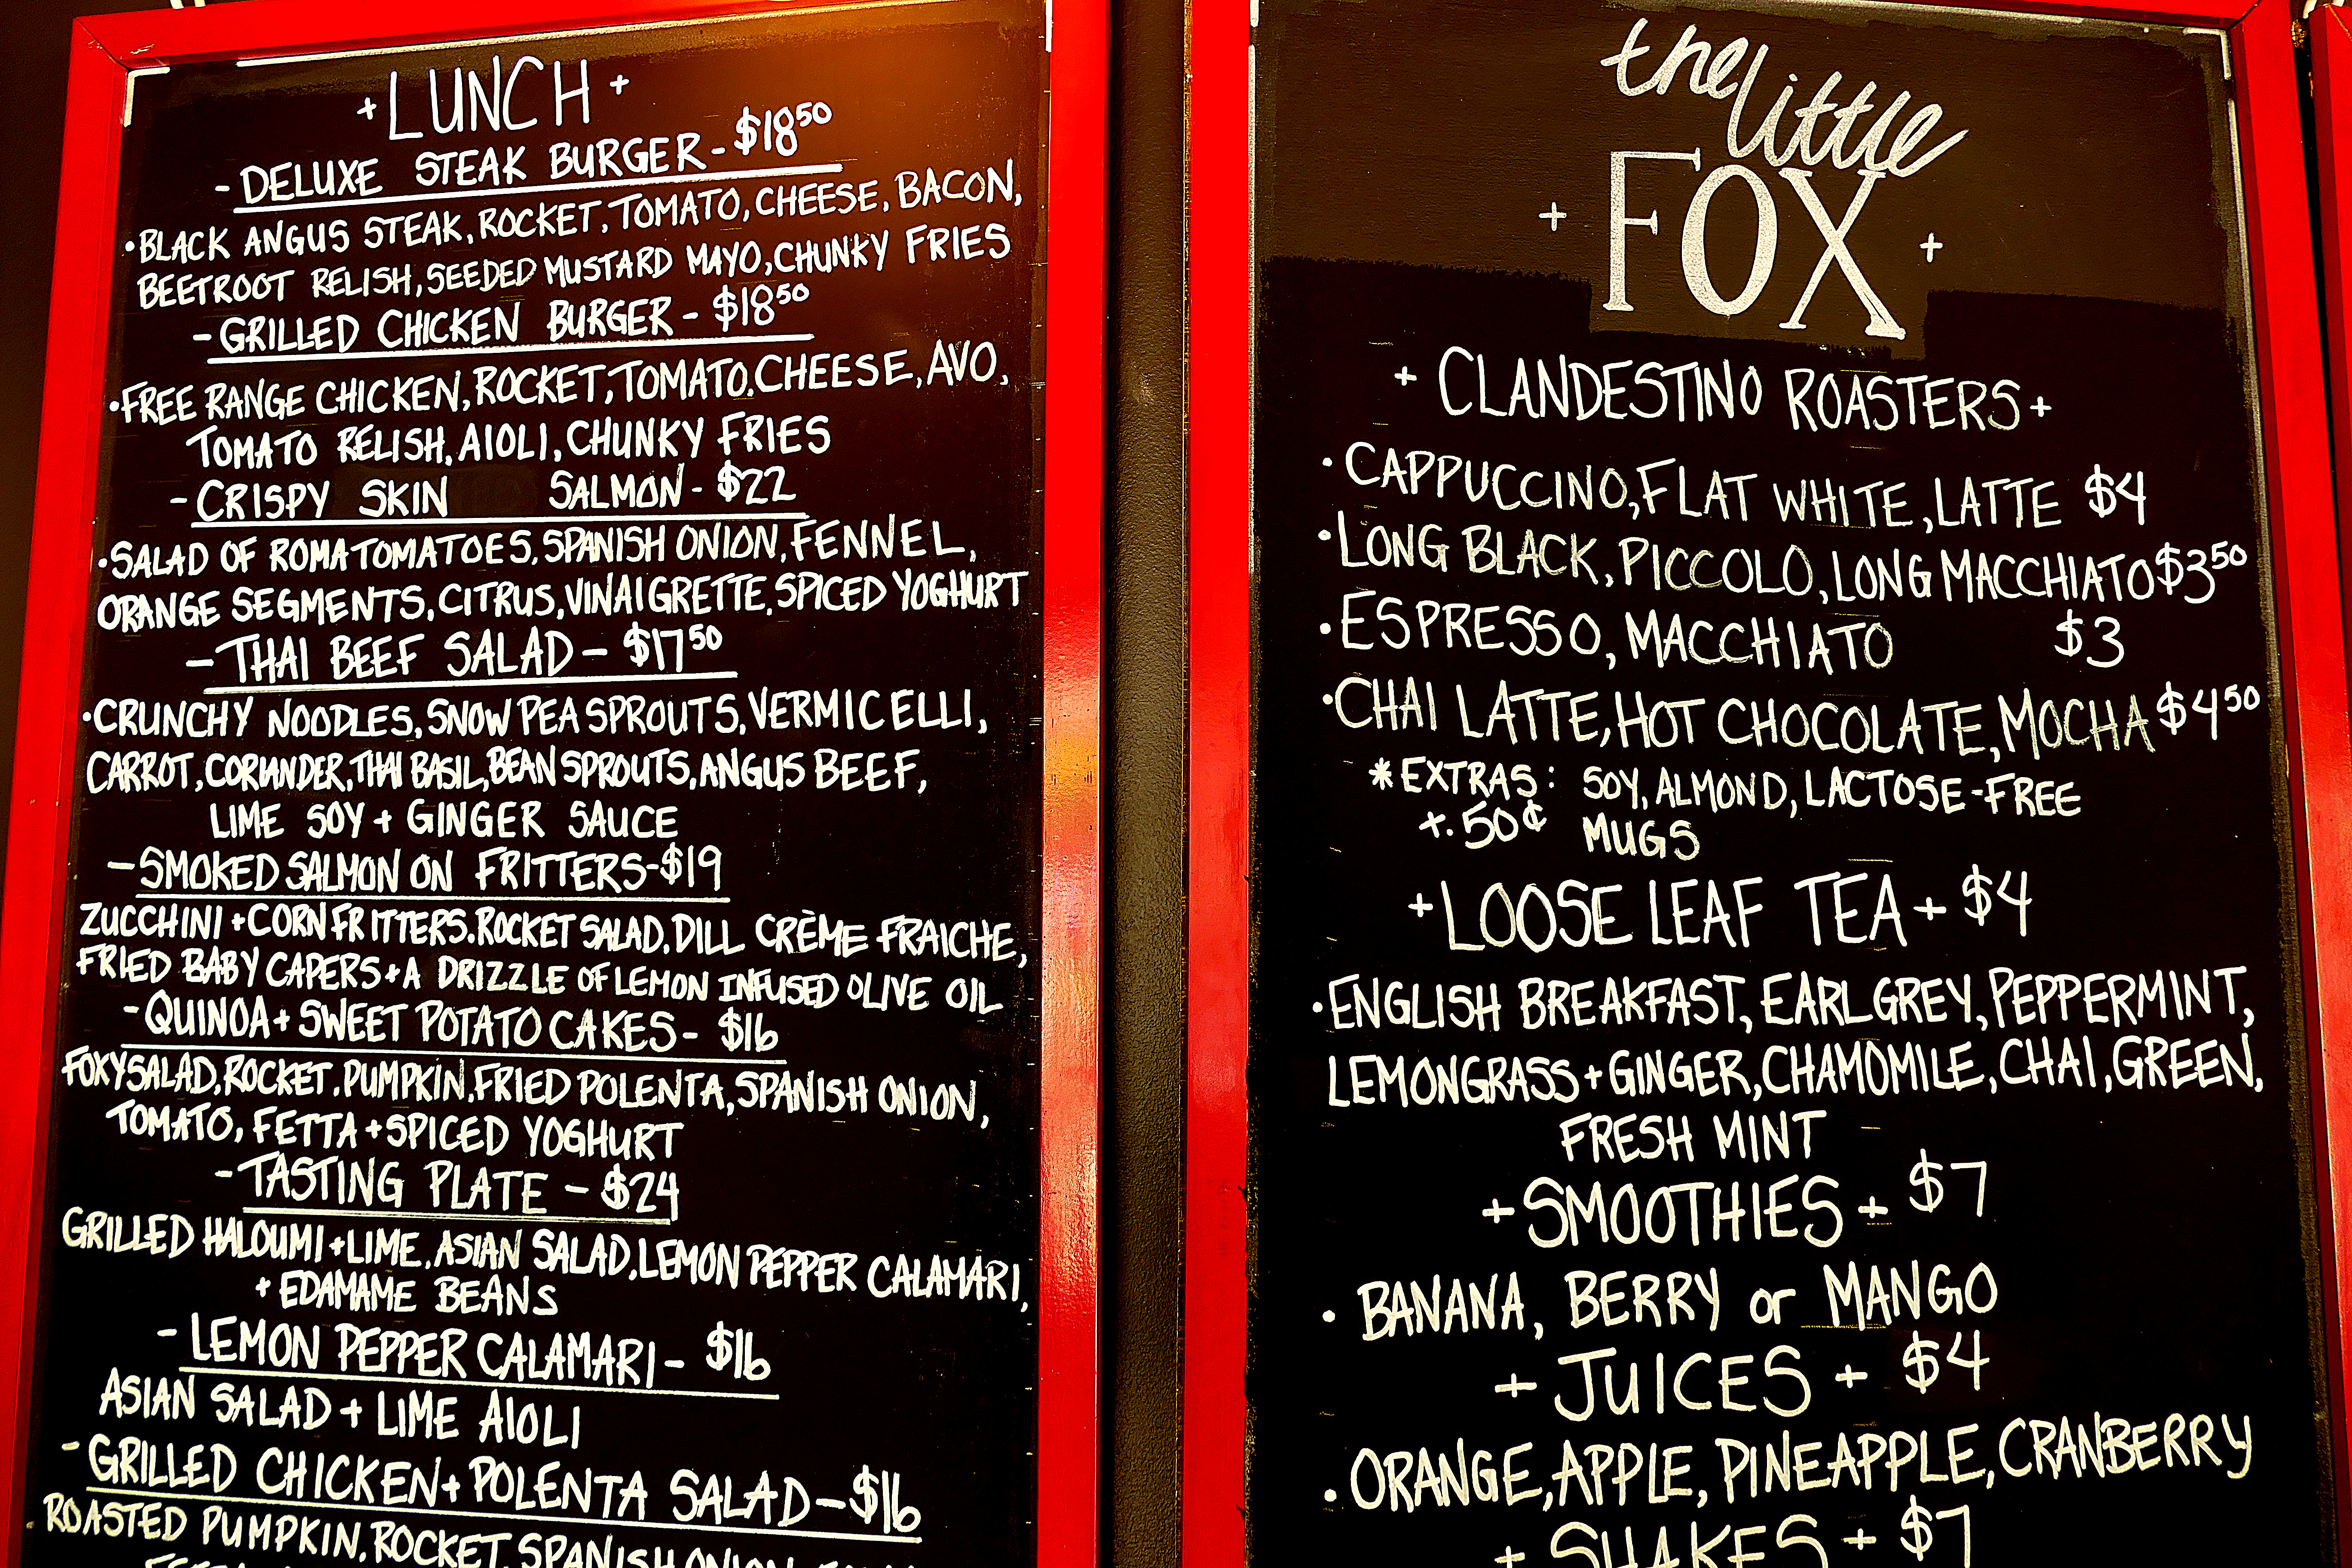 + LUNCH +
- DELUXE STEAK BURGER - $18⁵⁰
• BLACK ANGUS STEAK, ROCKET, TOMATO, CHEESE, BACON,
BEETROOT RELISH, SEEDED MUSTARD MAYO, CHUNKY FRIES
- GRILLED CHICKEN BURGER - $18⁵⁰
• FREE RANGE CHICKEN, ROCKET, TOMATO, CHEESE, AVO,
TOMATO RELISH, AIOLI, CHUNKY FRIES
- CRISPY SKIN SALMON - $22
• SALAD OF ROMA TOMATOES, SPANISH ONION, FENNEL,
ORANGE SEGMENTS, CITRUS, VINAIGRETTE, SPICED YOGHURT
- THAI BEEF SALAD - $17⁵⁰
• CRUNCHY NOODLES, SNOW PEA SPROUTS, VERMICELLI,
CARROT, CORIANDER, THAI BASIL, BEAN SPROUTS, ANGUS BEEF,
LIME SOY + GINGER SAUCE
- SMOKED SALMON ON FRITTERS - $19
ZUCCHINI + CORN FRITTERS, ROCKET SALAD, DILL CRÈME FRAICHE,
FRIED BABY CAPERS + A DRIZZLE OF LEMON INFUSED OLIVE OIL
- QUINOA + SWEET POTATO CAKES - $16
FOXY SALAD, ROCKET, PUMPKIN, FRIED POLENTA, SPANISH ONION,
TOMATO, FETTA + SPICED YOGHURT
- TASTING PLATE - $24
GRILLED HALOUMI + LIME, ASIAN SALAD, LEMON PEPPER CALAMARI,
+ EDAMAME BEANS
- LEMON PEPPER CALAMARI - $16
ASIAN SALAD + LIME AIOLI
- GRILLED CHICKEN + POLENTA SALAD - $16
• ROASTED PUMPKIN, ROCKET, SPANISH ONION,
the little
+ FOX +
+ CLANDESTINO ROASTERS +
• CAPPUCCINO, FLAT WHITE, LATTE $4
• LONG BLACK, PICCOLO, LONG MACCHIATO $3⁵⁰
• ESPRESSO, MACCHIATO $3
• CHAI LATTE, HOT CHOCOLATE, MOCHA $4⁵⁰
* EXTRAS: SOY, ALMOND, LACTOSE-FREE
+ .50¢ MUGS
+ LOOSE LEAF TEA + $4
• ENGLISH BREAKFAST, EARL GREY, PEPPERMINT,
LEMONGRASS + GINGER, CHAMOMILE, CHAI, GREEN,
FRESH MINT
+ SMOOTHIES + $7
• BANANA, BERRY or MANGO
+ JUICES + $4
• ORANGE, APPLE, PINEAPPLE, CRANBERRY
+ SHAKES + $7